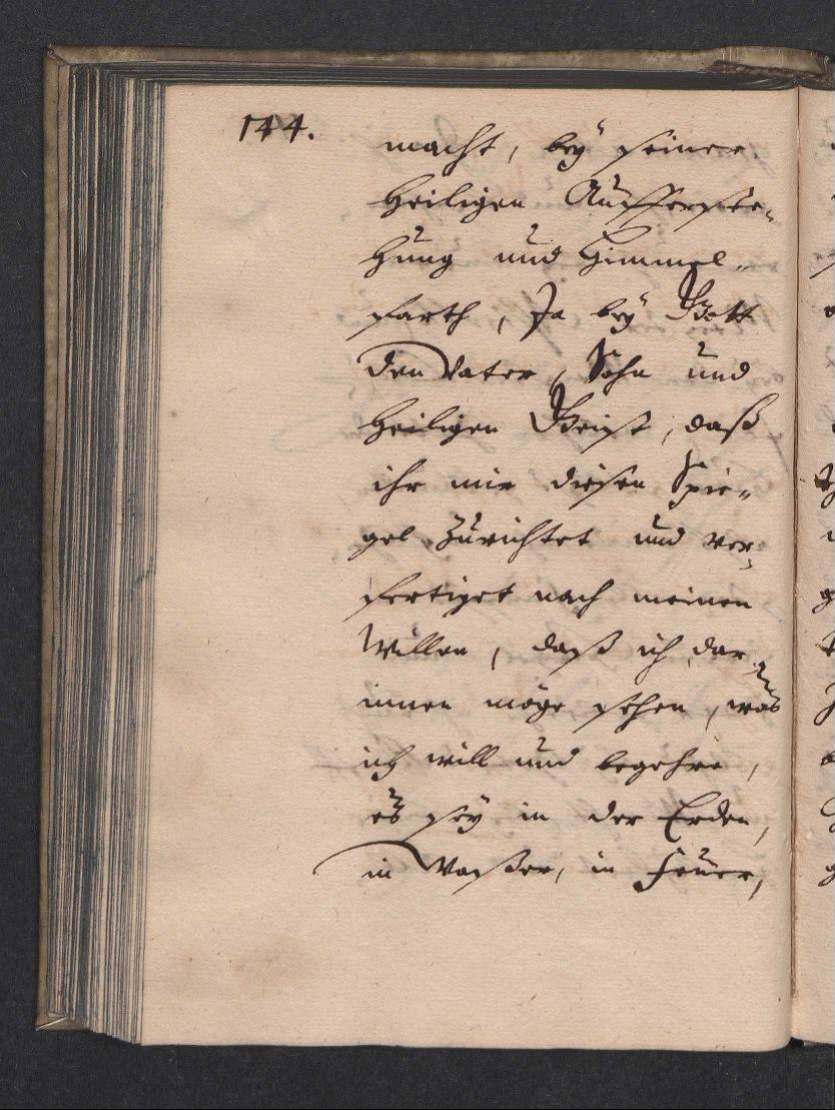 144.
macht, beÿ seiner
heiligen Aufferste„
hung und Himmel„
farth, Ja beÿ Gott
den Vater, Sohn und
heiligen Geist, daß
ihr mir diesen Spie„
gel Zurichtet und ver„
fertiget nach meinen
Willen, daß ich dar„
innen möge sehen, was
ich will und begehre,
es seÿ in der Erden,
in Waßer, in Feuer,